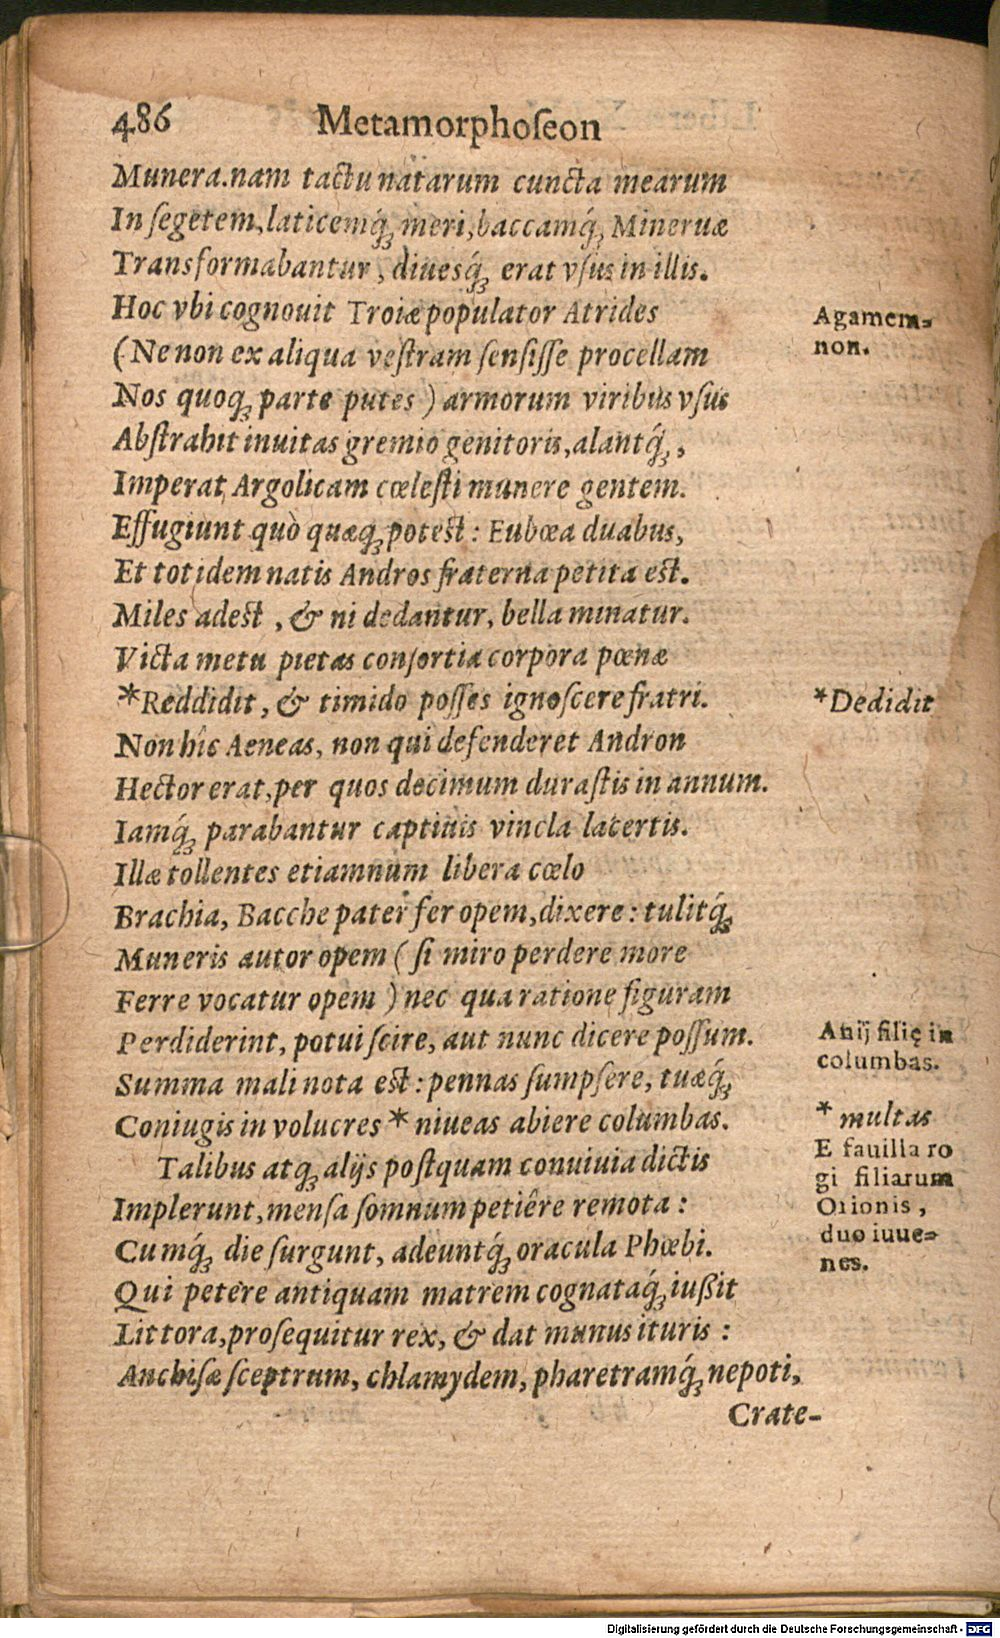 486 Metamorphoſeon
Munera.nam tactu natarum cuncta mearum
In ſegetem, laticemq́;, meri, baccamq́; Mineruæ
Transformabantur, diuesq́; erat vſus in illis.
Hoc vbi cognouit Troiæ populator Atrides
(Ne non ex aliqua veſtram ſenſiſſe procellam
Nos quoq; parte putes) armorum viribus vſus
Abſtrahit inuitas gremio genitoris, alantq́;,
Imperat, Argolicam cœleſti munere gentem.
Effugiunt quò quæq; poteſt: Eubœa duabus,
Et totidem natis Andros fraterna petita eſt.
Miles adeſt, & ni dedantur, bella minatur.
Victa metu pietas conſortia corpora pœnæ
*Reddidit, & timido poſſes ignoſcere fratri.
Non hîc Aeneas, non qui defenderet Andron
Hector erat, per quos decimum duraſtis in annum.
Iamq́; parabantur captiuis vincla lacertis.
Illæ tollentes etiamnum libera cœlo
Brachia, Bacche pater fer opem, dixere: tulitq́;
Muneris autor opem (ſi miro perdere more
Ferre vocatur opem) nec qua ratione figuram
Perdiderint, potui ſcire, aut nunc dicere poſſum.
Summa mali nota eſt: pennas ſumpſere, tuæq́;
Coniugis in volucres * niueas abiere columbas.
Talibus atq; alijs poſtquam conuiuia dictis
Implerunt, menſa ſomnum petiêre remota:
Cumq́; die ſurgunt, adeuntq́; oracula Phœbi.
Qui petere antiquam matrem cognataq́; iußit
Littora, proſequitur rex, & dat munus ituris:
Anchiſæ ſceptrum, chlamydem, pharetramq́; nepoti,
Crate-
Agamem=
non.
*Dedidit
Anij filię in
columbas.
* multas
E fauilla ro
gi filiarum
Orionis,
duo iuue=
nes.
Digitalisierung gefördert durch die Deutsche Forschungsgemeinschaft - DFG